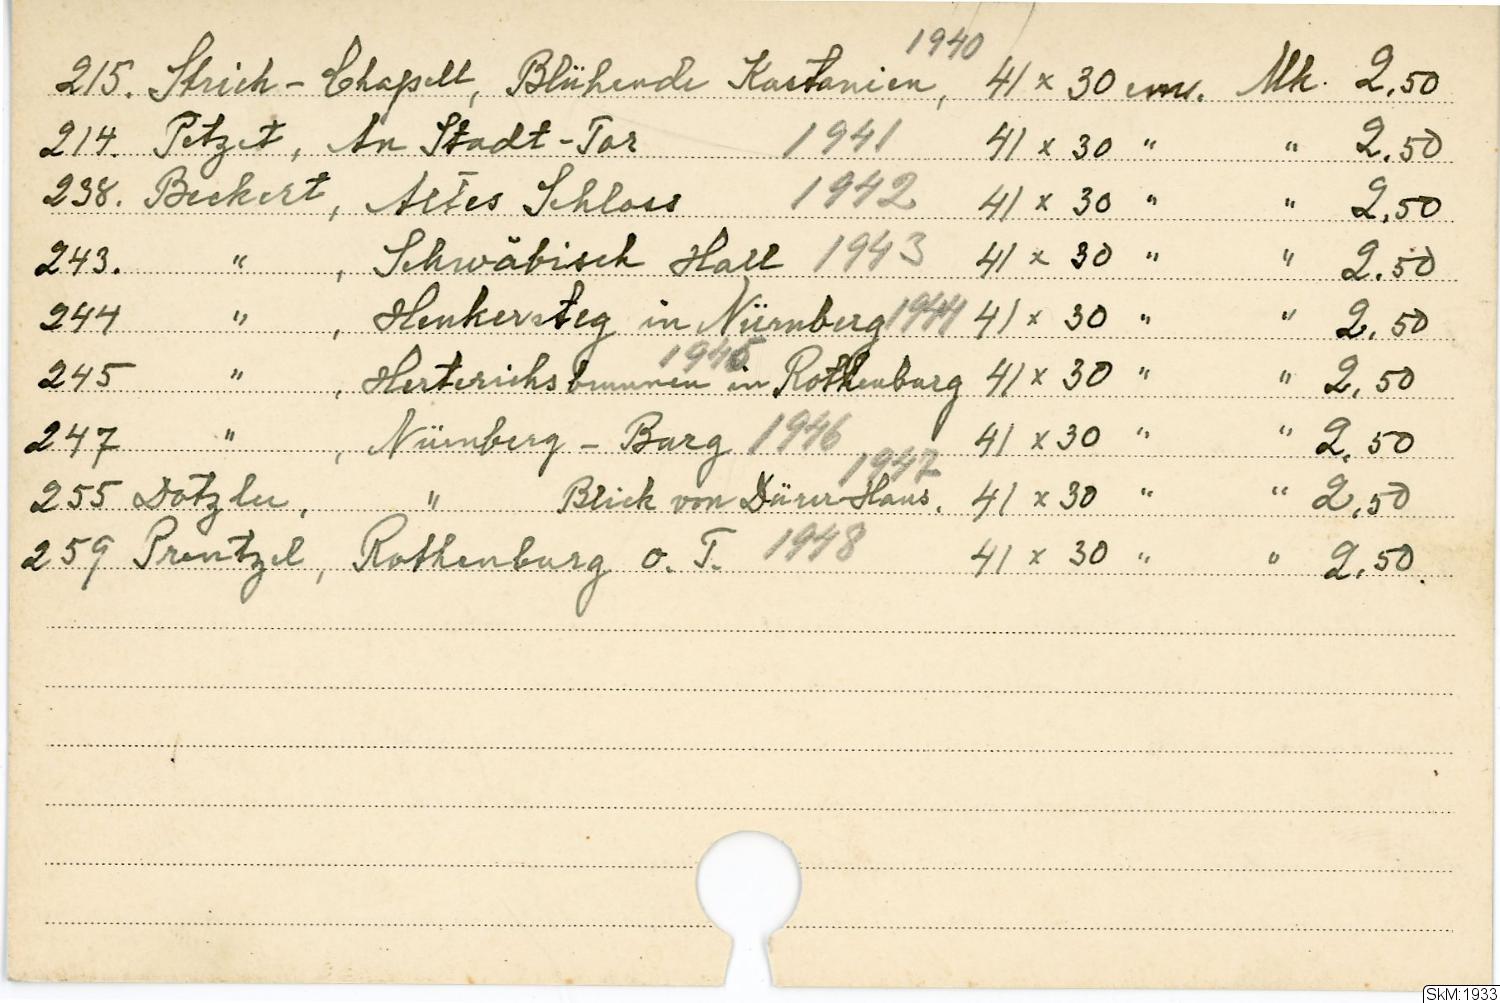 215. Strich - Chapell, Blühende Kastanien, 1940 41 x 30 cm. Mk. 2,50
214. Petzet, An Stadt-Tor 1941 41 x 30 " " 2,50
238. Beckert, Altes Schloss 1942 41 x 30 " " 2,50
243. " , Schwäbisch Hall 1943 41 x 30 " " 2,50
244 " , Henkersteg in Nürnberg 1944 41 x 30 " " 2,50
245 " , Herterichsbrunnen in Rothenburg 1945 41 x 30 " " 2,50
247 " , Nürnberg - Burg 1946 41 x 30 " " 2,50
255 Dotzler, " Blick von Dürer-Haus. 1947 41 x 30 " " 2,50
259 Prentzel, Rothenburg o. T. 1948 41 x 30 " " 2,50.
SkM:1933